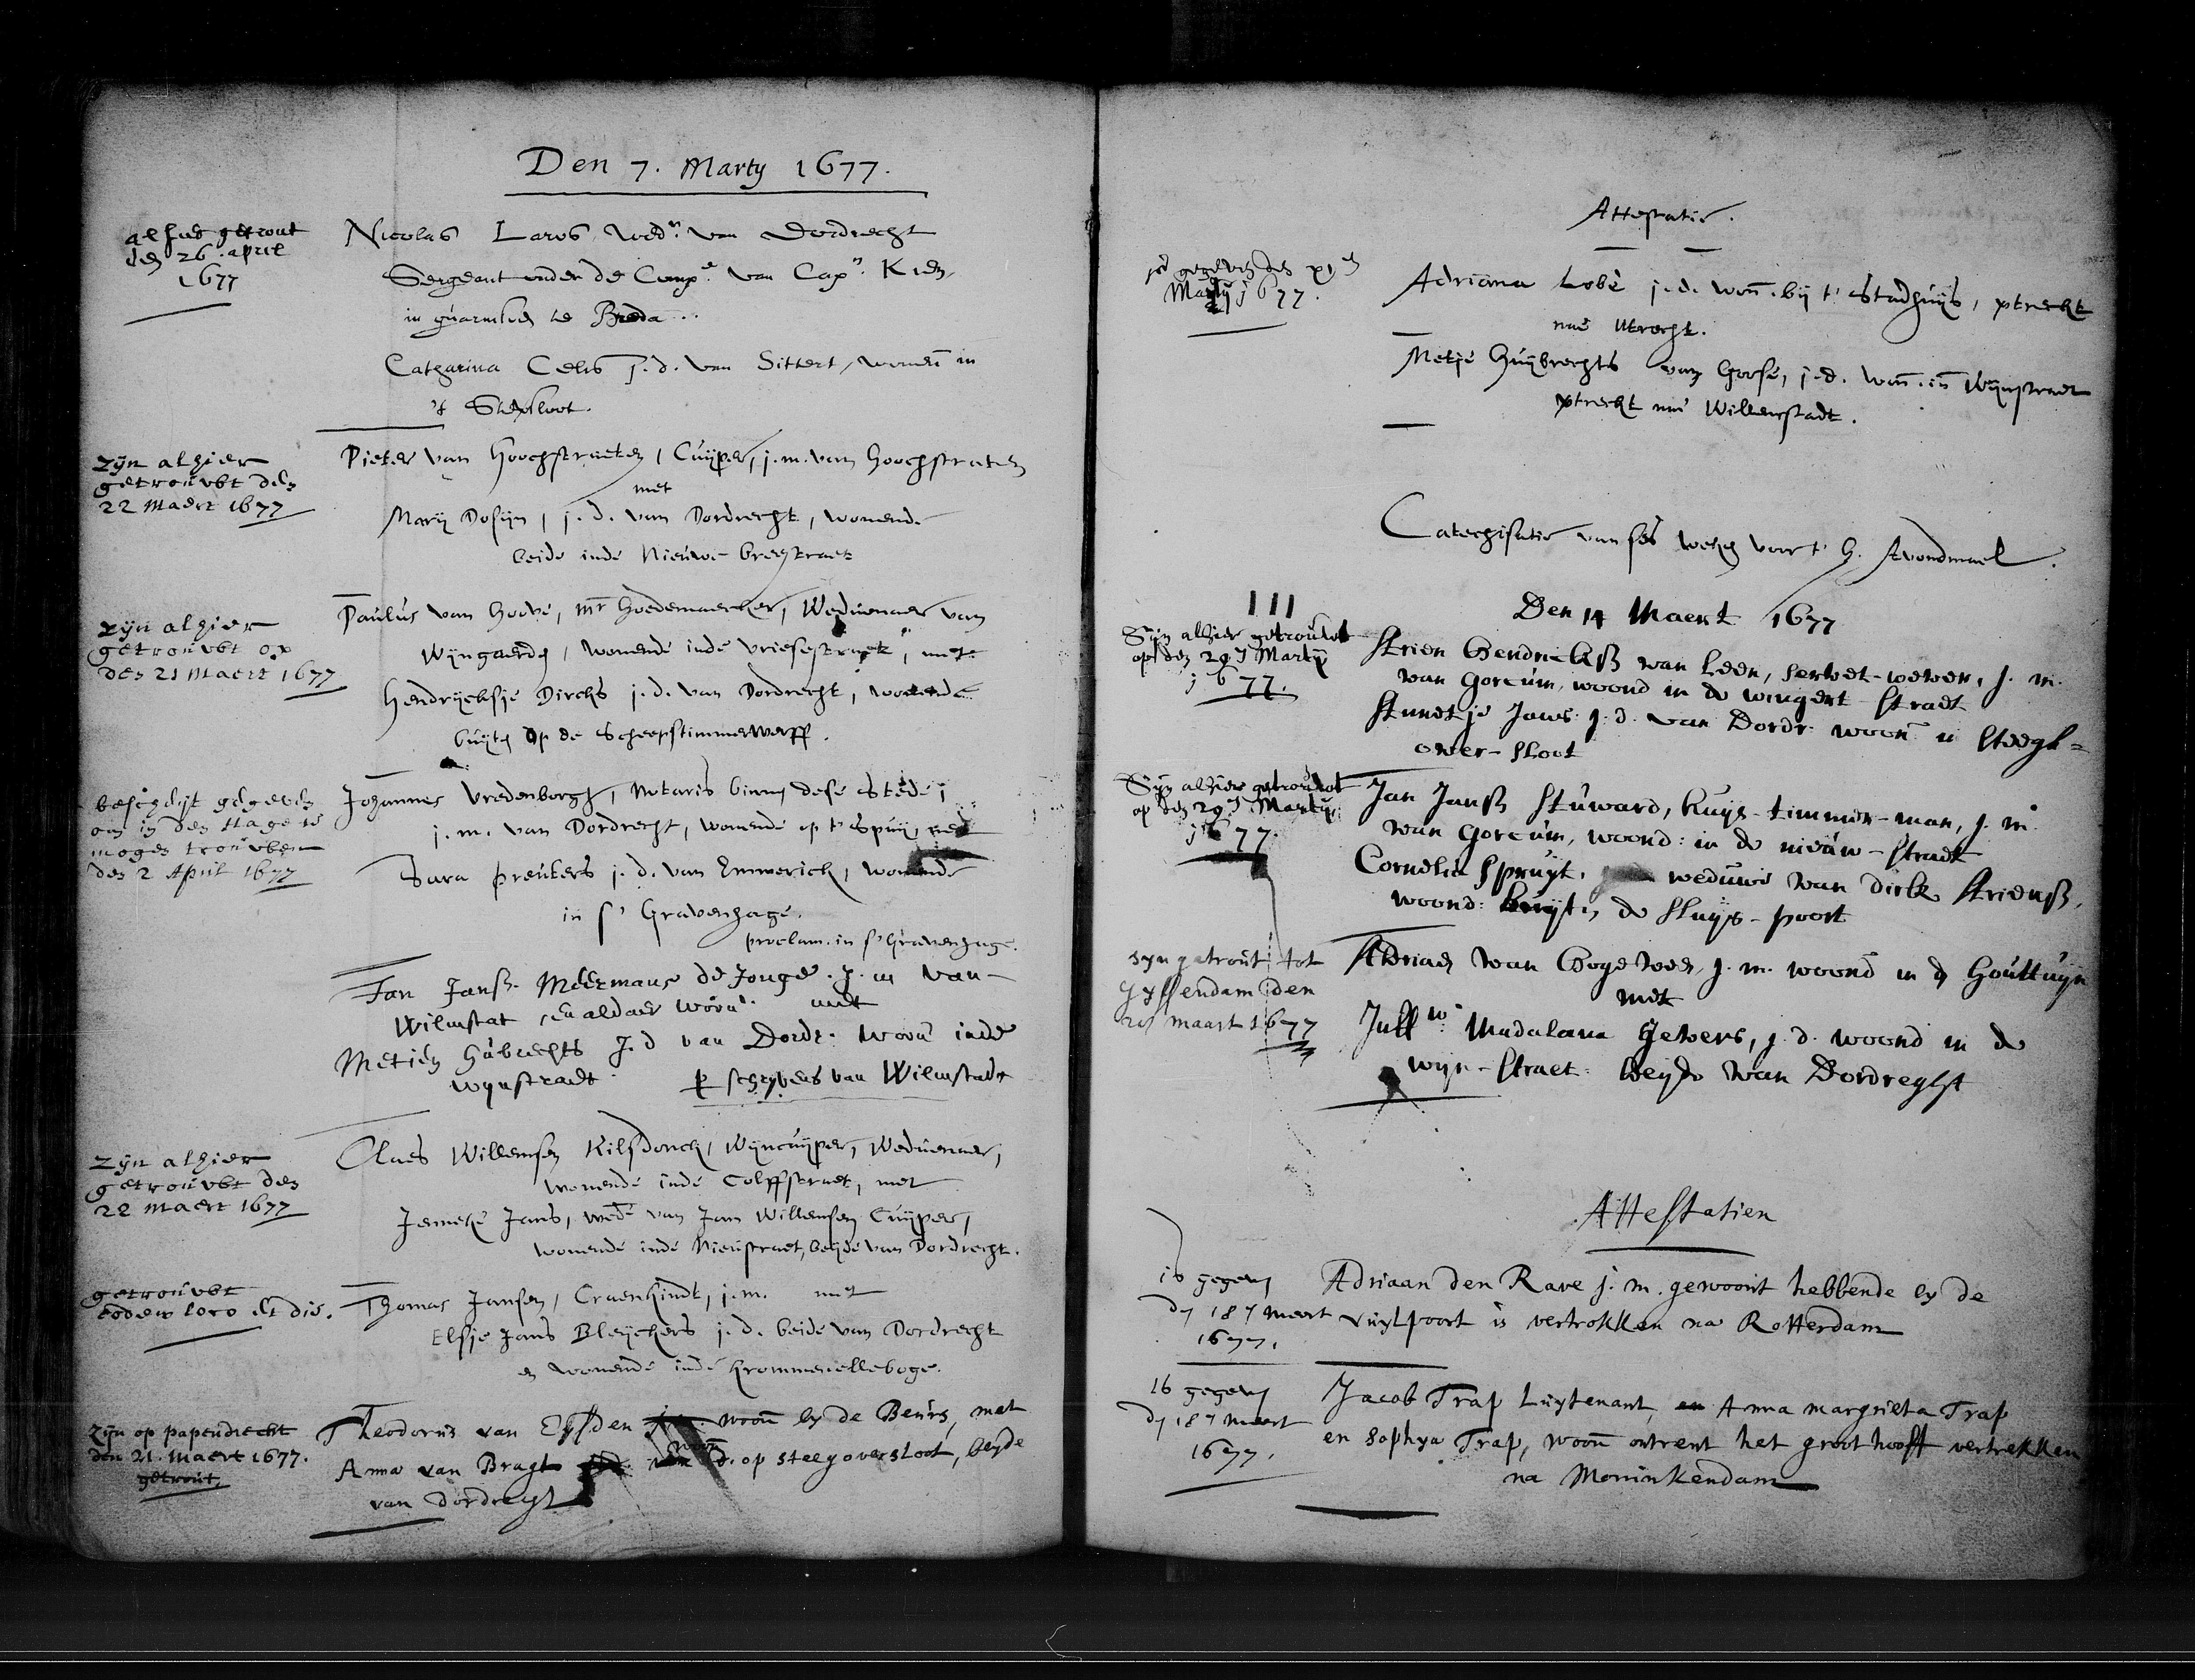 Den 7. Marty 1677.
alhier getrout
den 26. april
1677
Nicolas Laros Wedr. van Dordrecht
Sergeant onder de Compe. van Capn. Kien
in guarnisoen te Breda
Catharina Celis j.d. van Sittert, wonen in
't Steegsloot.
Zyn alhier
getrouwbt den
22 Maert 1677
Pieter van Hoochstraeten, Cuyper, j.m. van Hoochstraten
met
Marij Dosijn, j.d. van Dordrecht, wonende
beide inde Nieuwe breestraet
Zyn alhier
getrouwbt op
den 21 Maert 1677
Paulus van Hoove, mr Hoedemaecker, Weduenaer van
Wijngaerden, wonende inde Vriesestraet, met
Hendrijcksje Dircks j.d. van Dordrecht, wonende
buyten op de Scheepstimmerwerff.
gegeven
om in den Hage te
mogen trouwben
den 2 April 1677
Johannes Vredenborgh, Notaris binnen dese Stede,
j.m. van Dordrecht, wonende op t' Spuij, met
Sara Preukers j.d. van Emmerick, wonende
in s' Gravenhage.
proclam. in s' Gravenhage.
Jan Jansz. Meermans de Jonge. J.m van
Wilmstat en aldaer woon. met
Metien Hubrechts J.d van Dordr. woon inde
wynstraet. p schryvens van Wilmstadt
Zyn alhier
getrouwbt den
22 Maert 1677
Claes Willemsen Kilsdonck, Wijncuyper, Weduenaer,
wonende inde Colffstraet, met
Jenneke Jans, wede van Jan Willemsen Cuyper,
wonende inde Nieustraet, beyde van Dordrecht.
getrouwbt
eodem loco et die.
Thomas Jansen, Craenkindt, j.m. met
Elsje Jans Bleyckers j.d. beide van Dordrecht
en wonende inde Krommenelleboge.
Zyn op papendrecht
den 21. Maert 1677.
getrout,
Theodorus van Eysden woon by de Beurs, met
Anna van Bragt woon d. op steegoversloot, beyde
van Dordreght
Attestatie.
gegeven den
Martij 1677.
Adriana Lobé j.d. won. bij t' Stadhuijs, vtreckt
naé Utrecht.
Metje Huijbrechts van Goose, j.d. won. in Wijnstraet
vtreckt naé Willemstadt.
Catechisatie van ses weken voor t' H. Avondmael.
III
Den 14 Maert 1677
Syn alhier getrouwt
op den 29 Martij
1677.
Arien Hendricksz van Leen, servet-wever, j.m.
van Gorcum, woond in de wingert-straet
Anneetje Jans. j.d. van Dordr. woon in Steegh=
over-sloot
Syn alhier getrouwt
op den 29 Martij
1677.
Jan Jansz Stuward, huys-timmer-man, j.m.
van Gorcum, woond: in de nieuw-straet
Cornelia Spruyt, weduwe van Dirck Ariensz,
woond: buyten de Sluys-poort
syn getrout tot
Gyssendam den
maart 1677
Adriaen van Hogeveen, j.m. woond in de Houttuyn
met
Juffw. Madalana Gevers, j.d. woond in de
wijn-straet. Beyde van Dordreght
Attestatien
is gegeven
den 18 meert
1677.
Adriaan den Rave j.m. gewoont hebbende by de
Vuylpoort is vertrokken na Rotterdam
is gegeven
den 18 meert
1677.
Jacob Trap Luytenant, en Anna margrieta Trap
en Sophya Trap, woon ontrent het groot hooft vertrekken
na Moninkendam